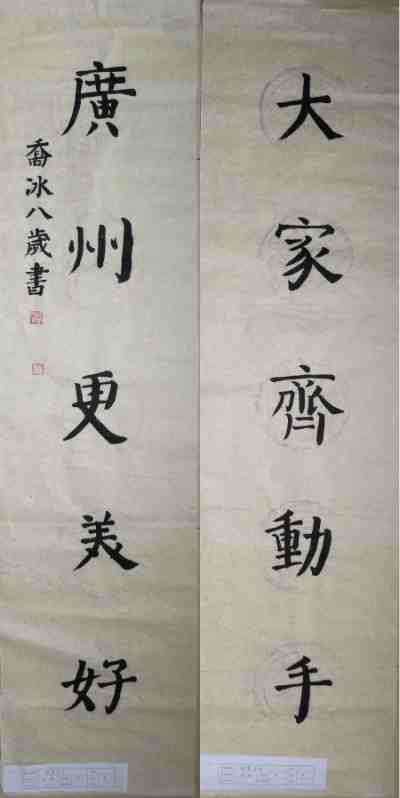 大家齊動手
廣州更美好
喬冰八歲書